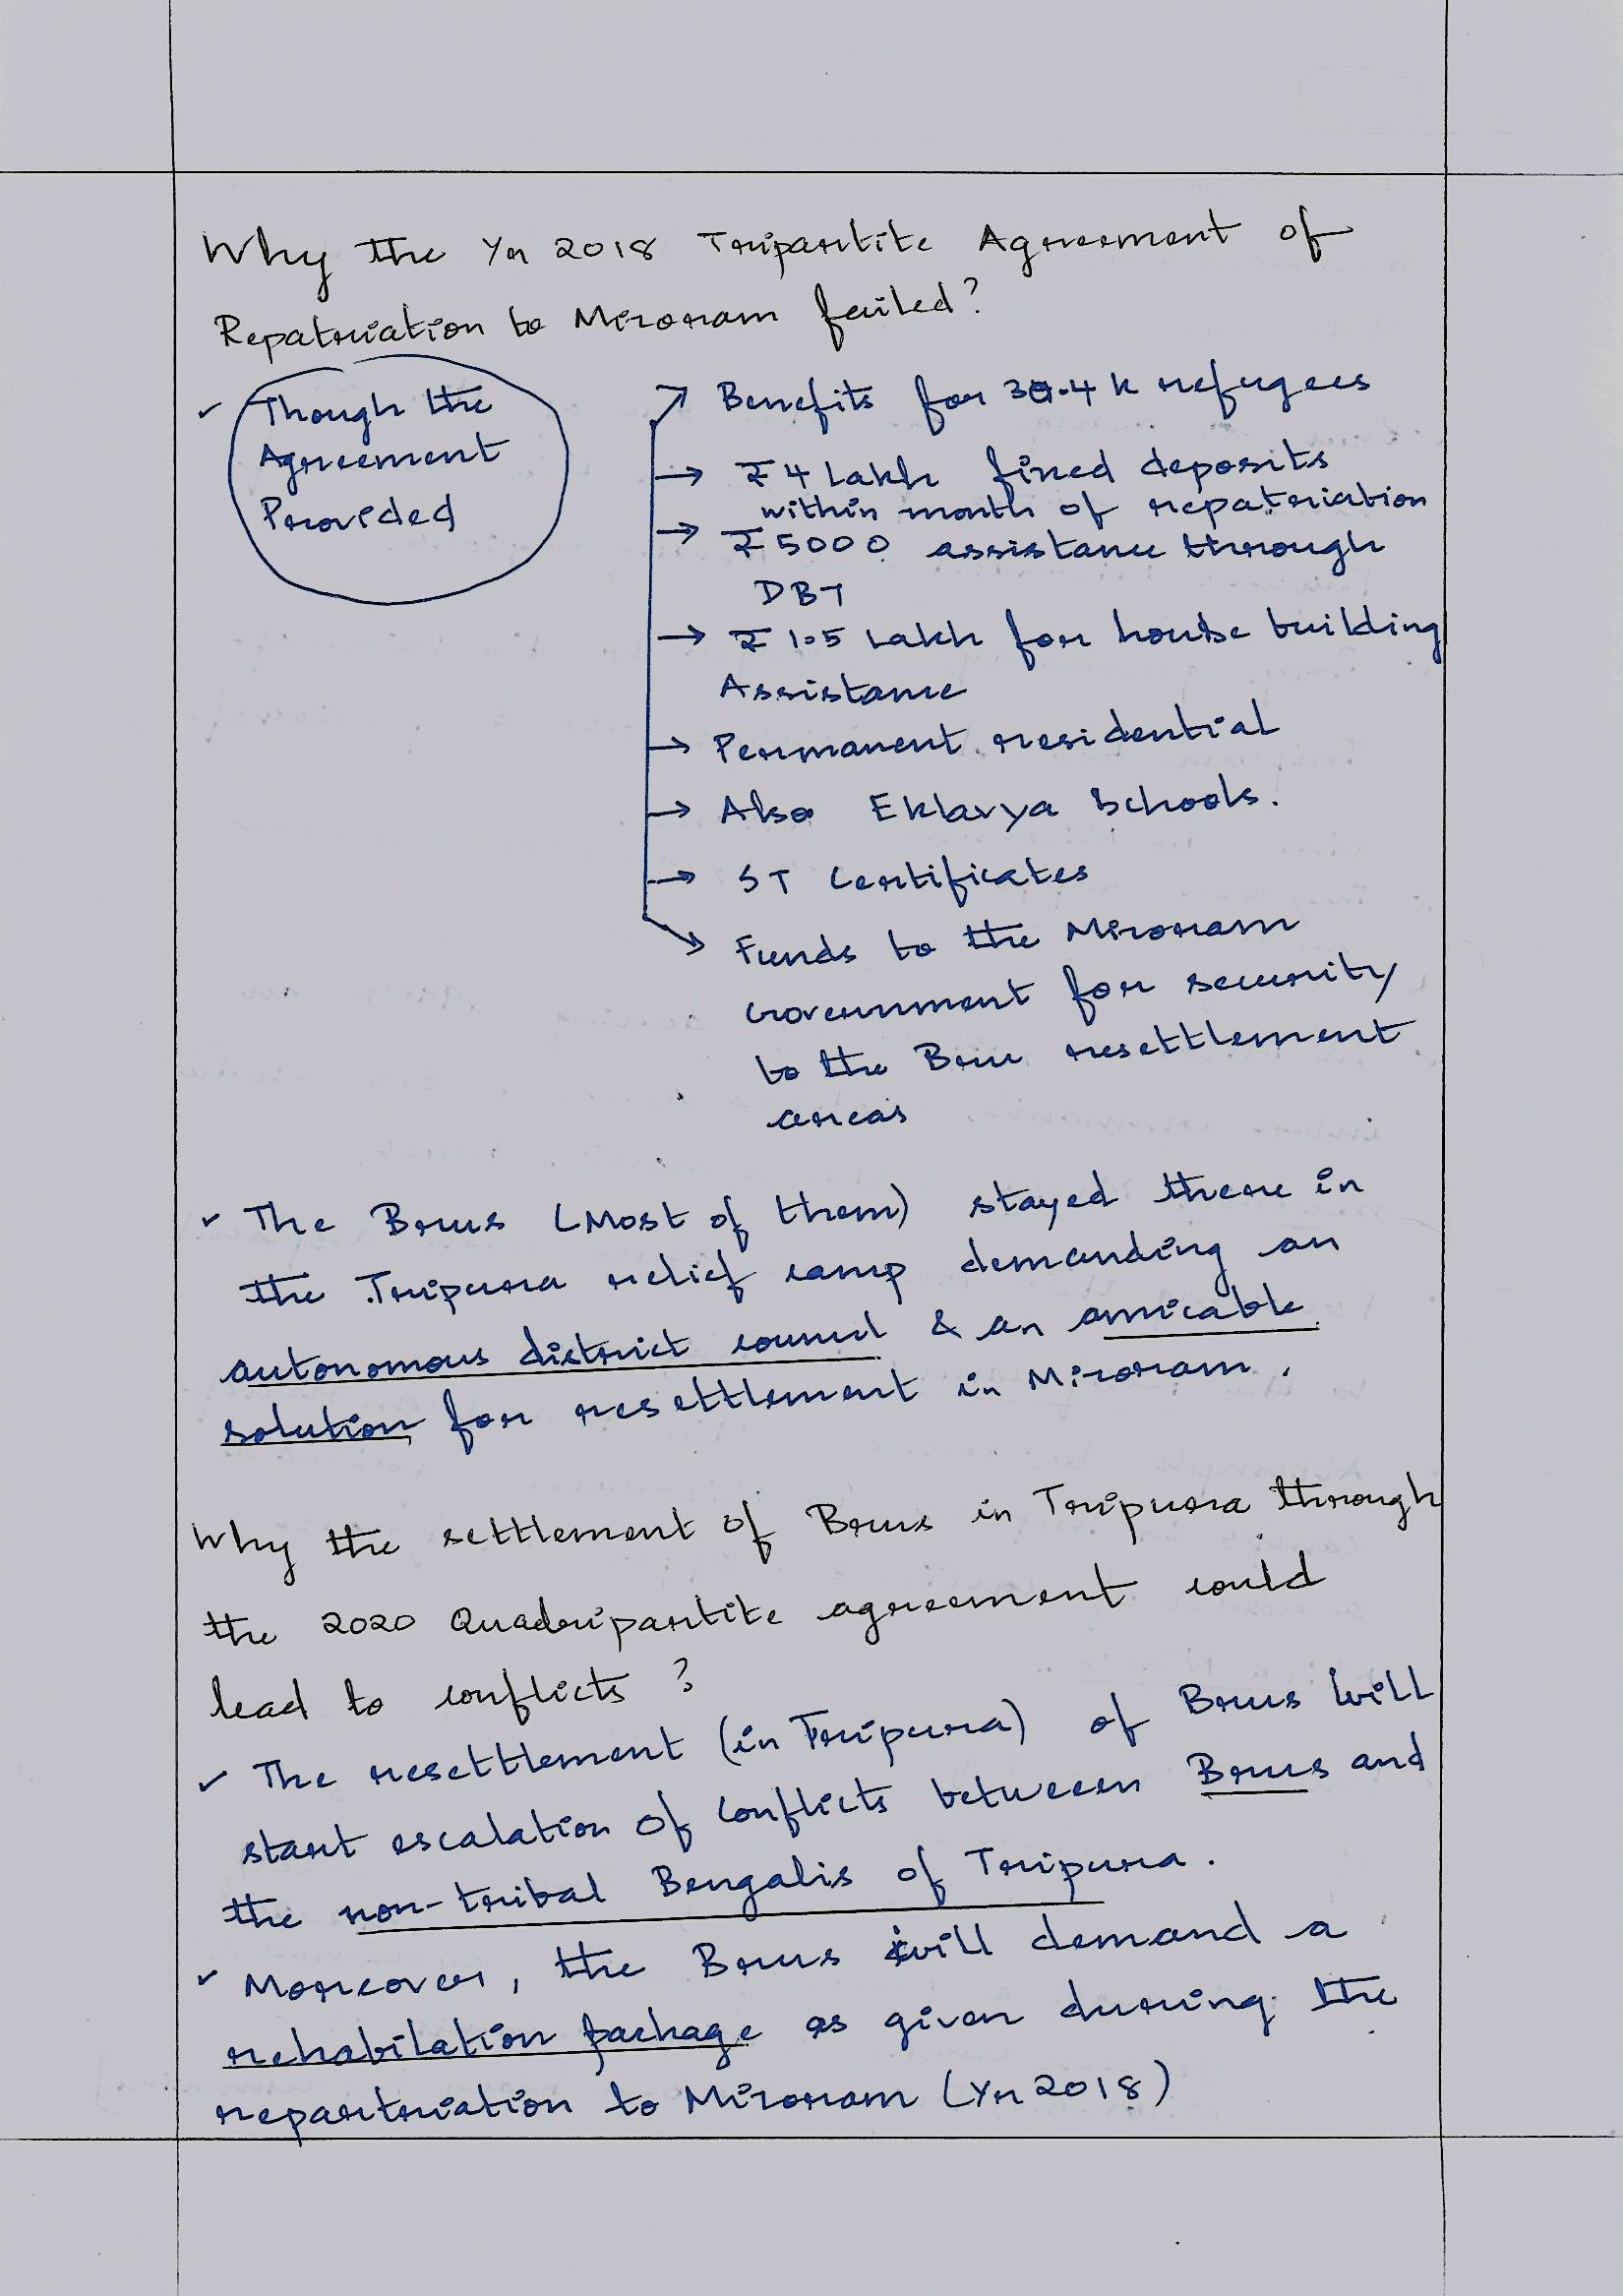 Why the Yr 2018 Tripartite Agreement of
Repatriation to Mizoram failed?
✓ Though the
Agreement
Provided
↗ Benefits for 30.4 k refugees
→ ₹4 Lakh fixed deposits
within month of repatriation
→ ₹5000 assistance through
DBT
→ ₹1.5 Lakh for house building
Assistance
→ Permanent residential
→ Also Eklavya Schools.
→ ST Certificates
↘ Funds to the Mizoram
Government for security
to the Bru resettlement
areas
✓ The Brus (Most of them) stayed there in
the Tripura relief camp demanding an
autonomous district council & an amicable
solution for resettlement in Mizoram.
Why the settlement of Brus in Tripura through
the 2020 Quadripartite agreement could
lead to conflicts ?
✓ The resettlement (in Tripura) of Brus will
start escalation of conflicts between Brus and
the non-tribal Bengalis of Tripura.
✓ Moreover, the Brus will demand a
rehabilation package as given during the
repartriation to Mizoram (Yr 2018)